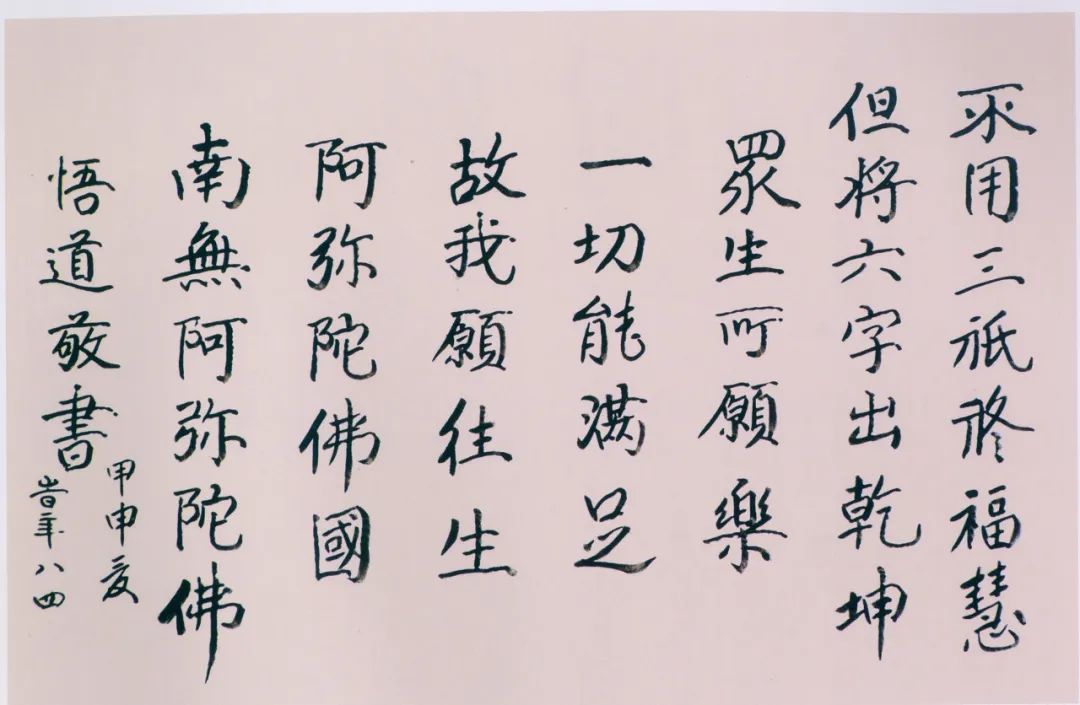 不用三祇修福慧
但将六字出乾坤
眾生所願樂
一切能满足
故我願往生
阿弥陀佛國
南無阿弥陀佛
悟道敬書
甲申夏
旹年八四